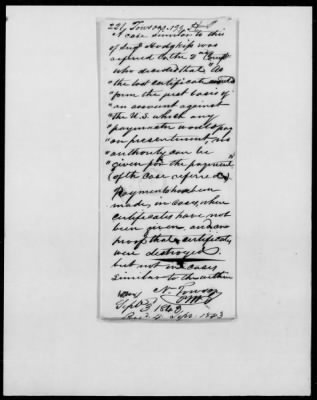 221 Towson
A case similar to this
of Surg. Hodgkiss was
referred to the 2nd Compt
who decided that "As
"the lost certificate would
"form the just basis of
"an account against
"the U.S. which any
"paymaster would pay
"on presentment, no
"authority can be
"given for the payment"
(of the case referred)
Payments have been
made, in cases, where
certificates have not
been given, and on
proof that certificates
were destroyed.
but not in cases
similar to this
N. Towson
P.M.G.
Sept 3 1843
Recd 4 Sept 1843